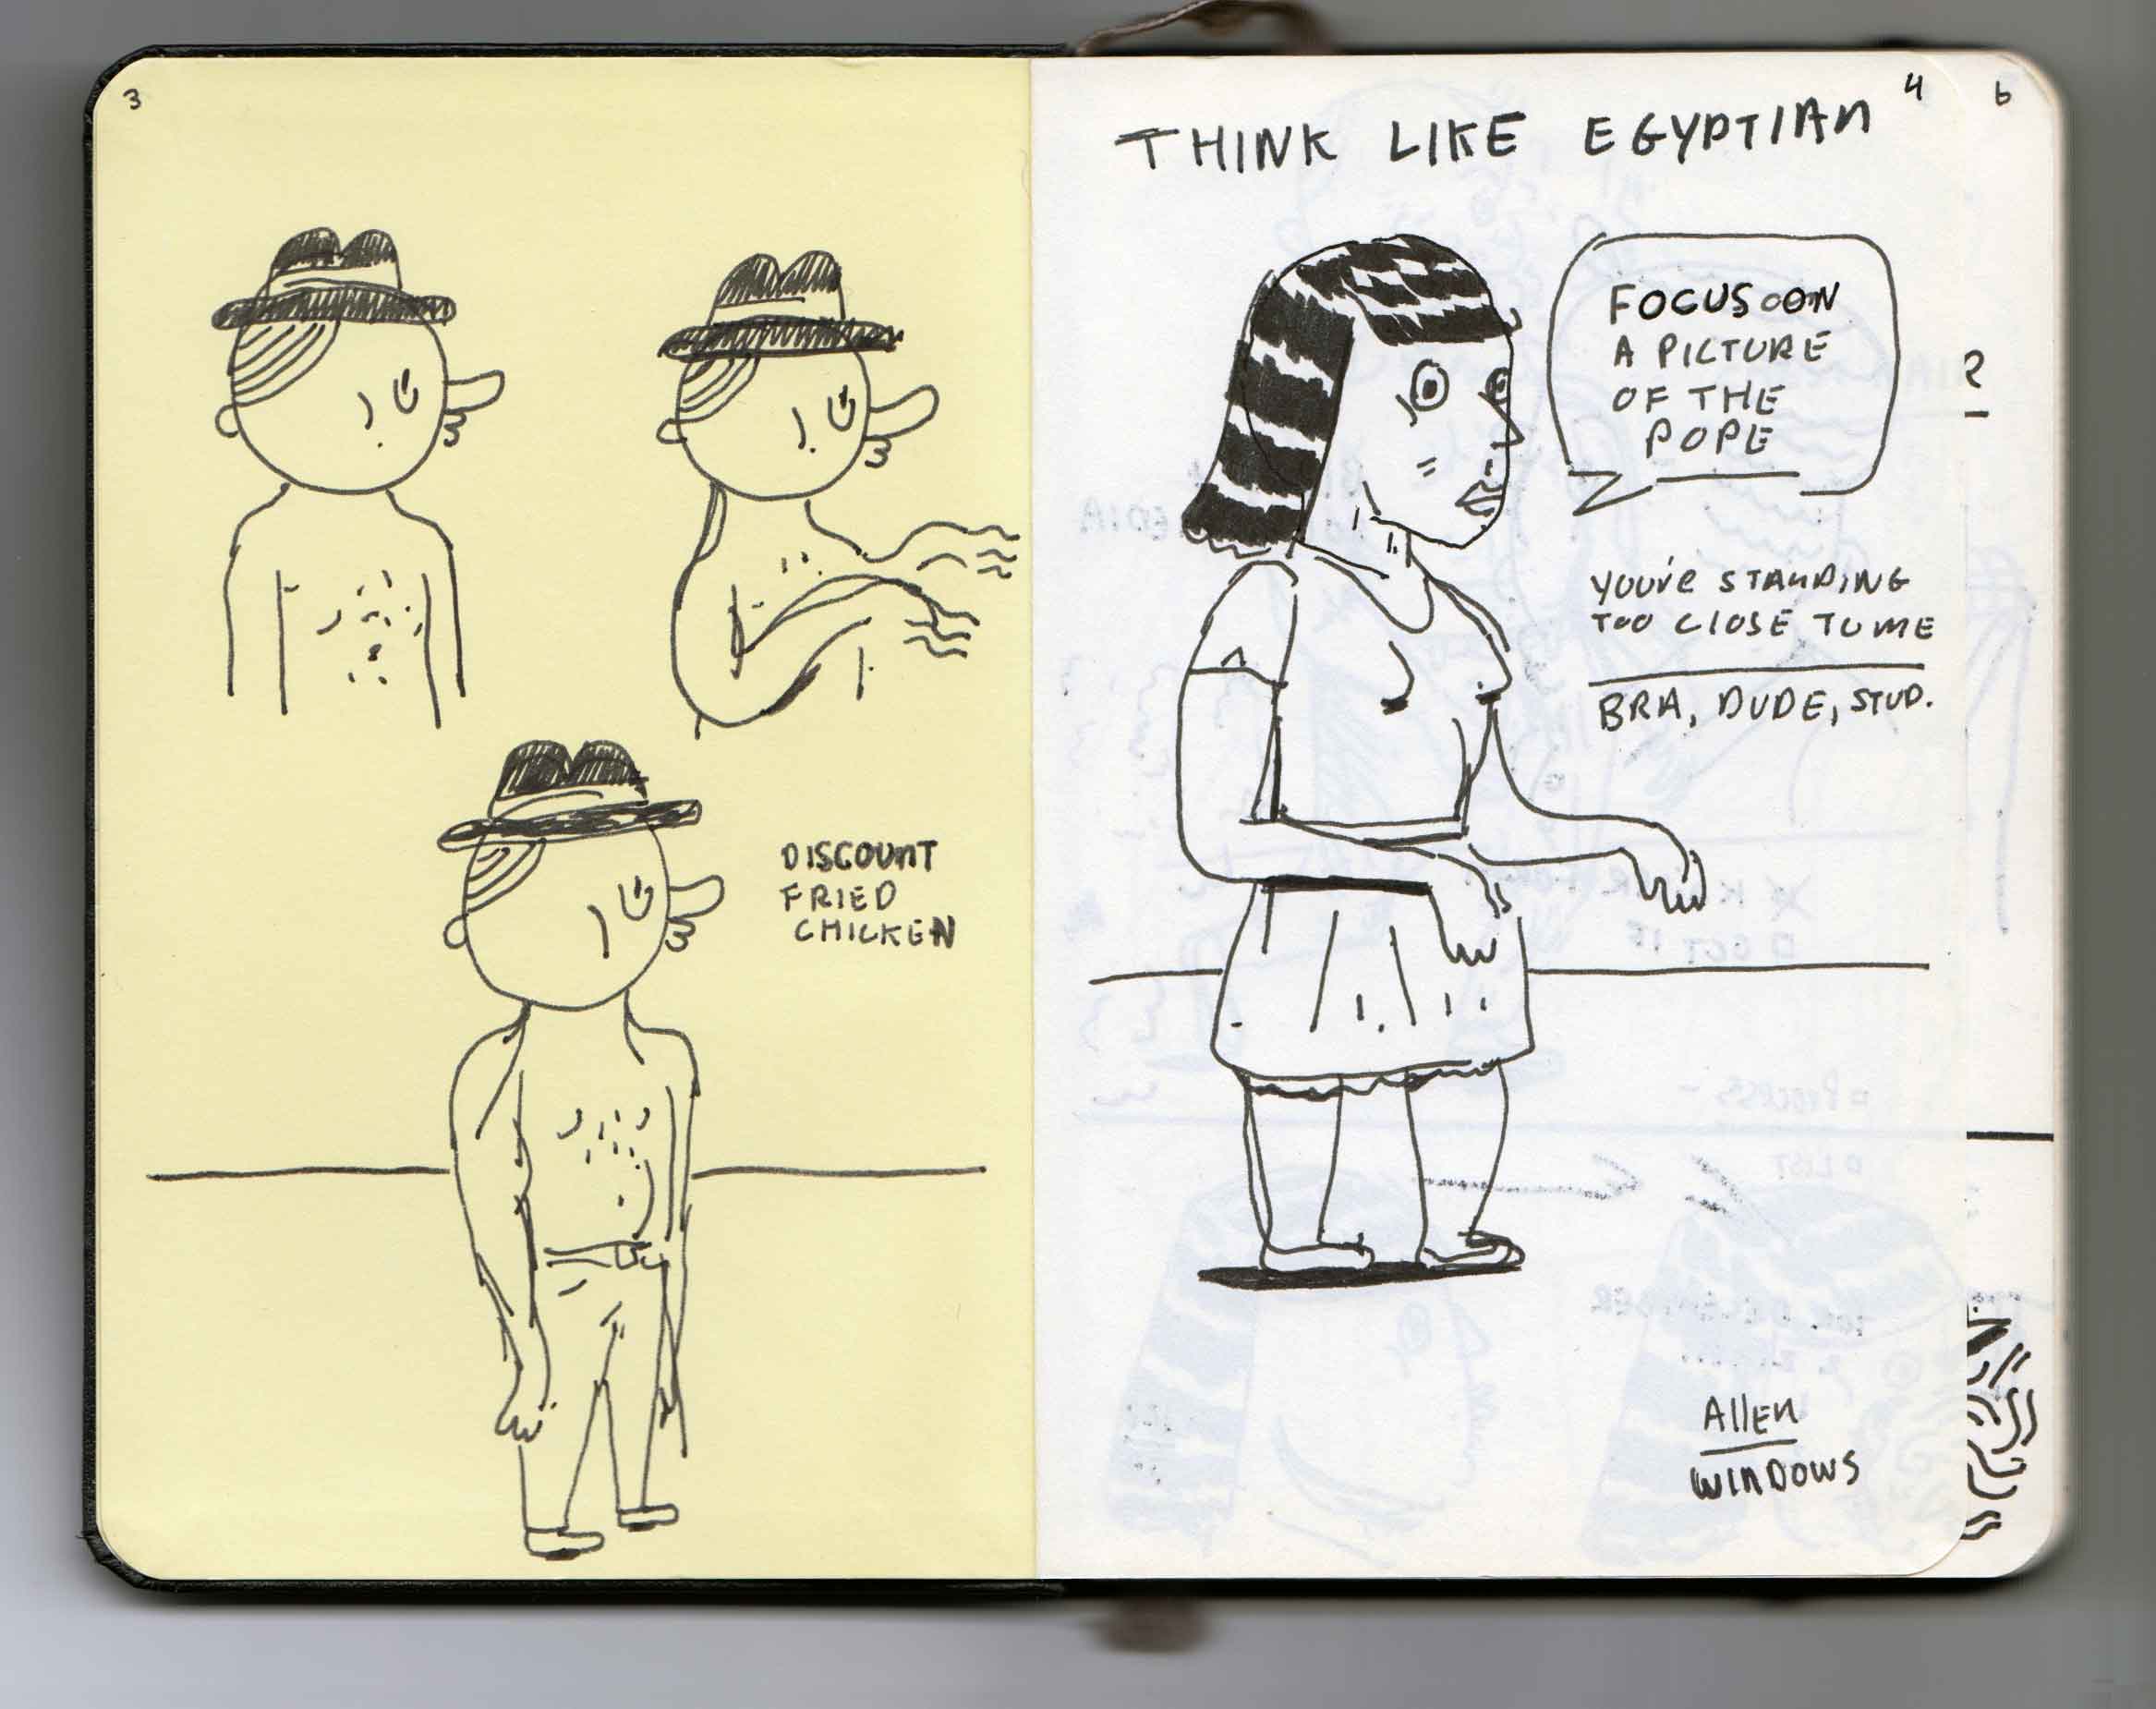 3
DISCOUNT
FRIED
CHICKEN
4
6
THINK LIKE EGYPTIAN
FOCUS ON
A PICTURE
OF THE
POPE
?
YOU'RE STANDING
TOO CLOSE TO ME
BRA, DUDE, STUD.
Allen
WINDOWS